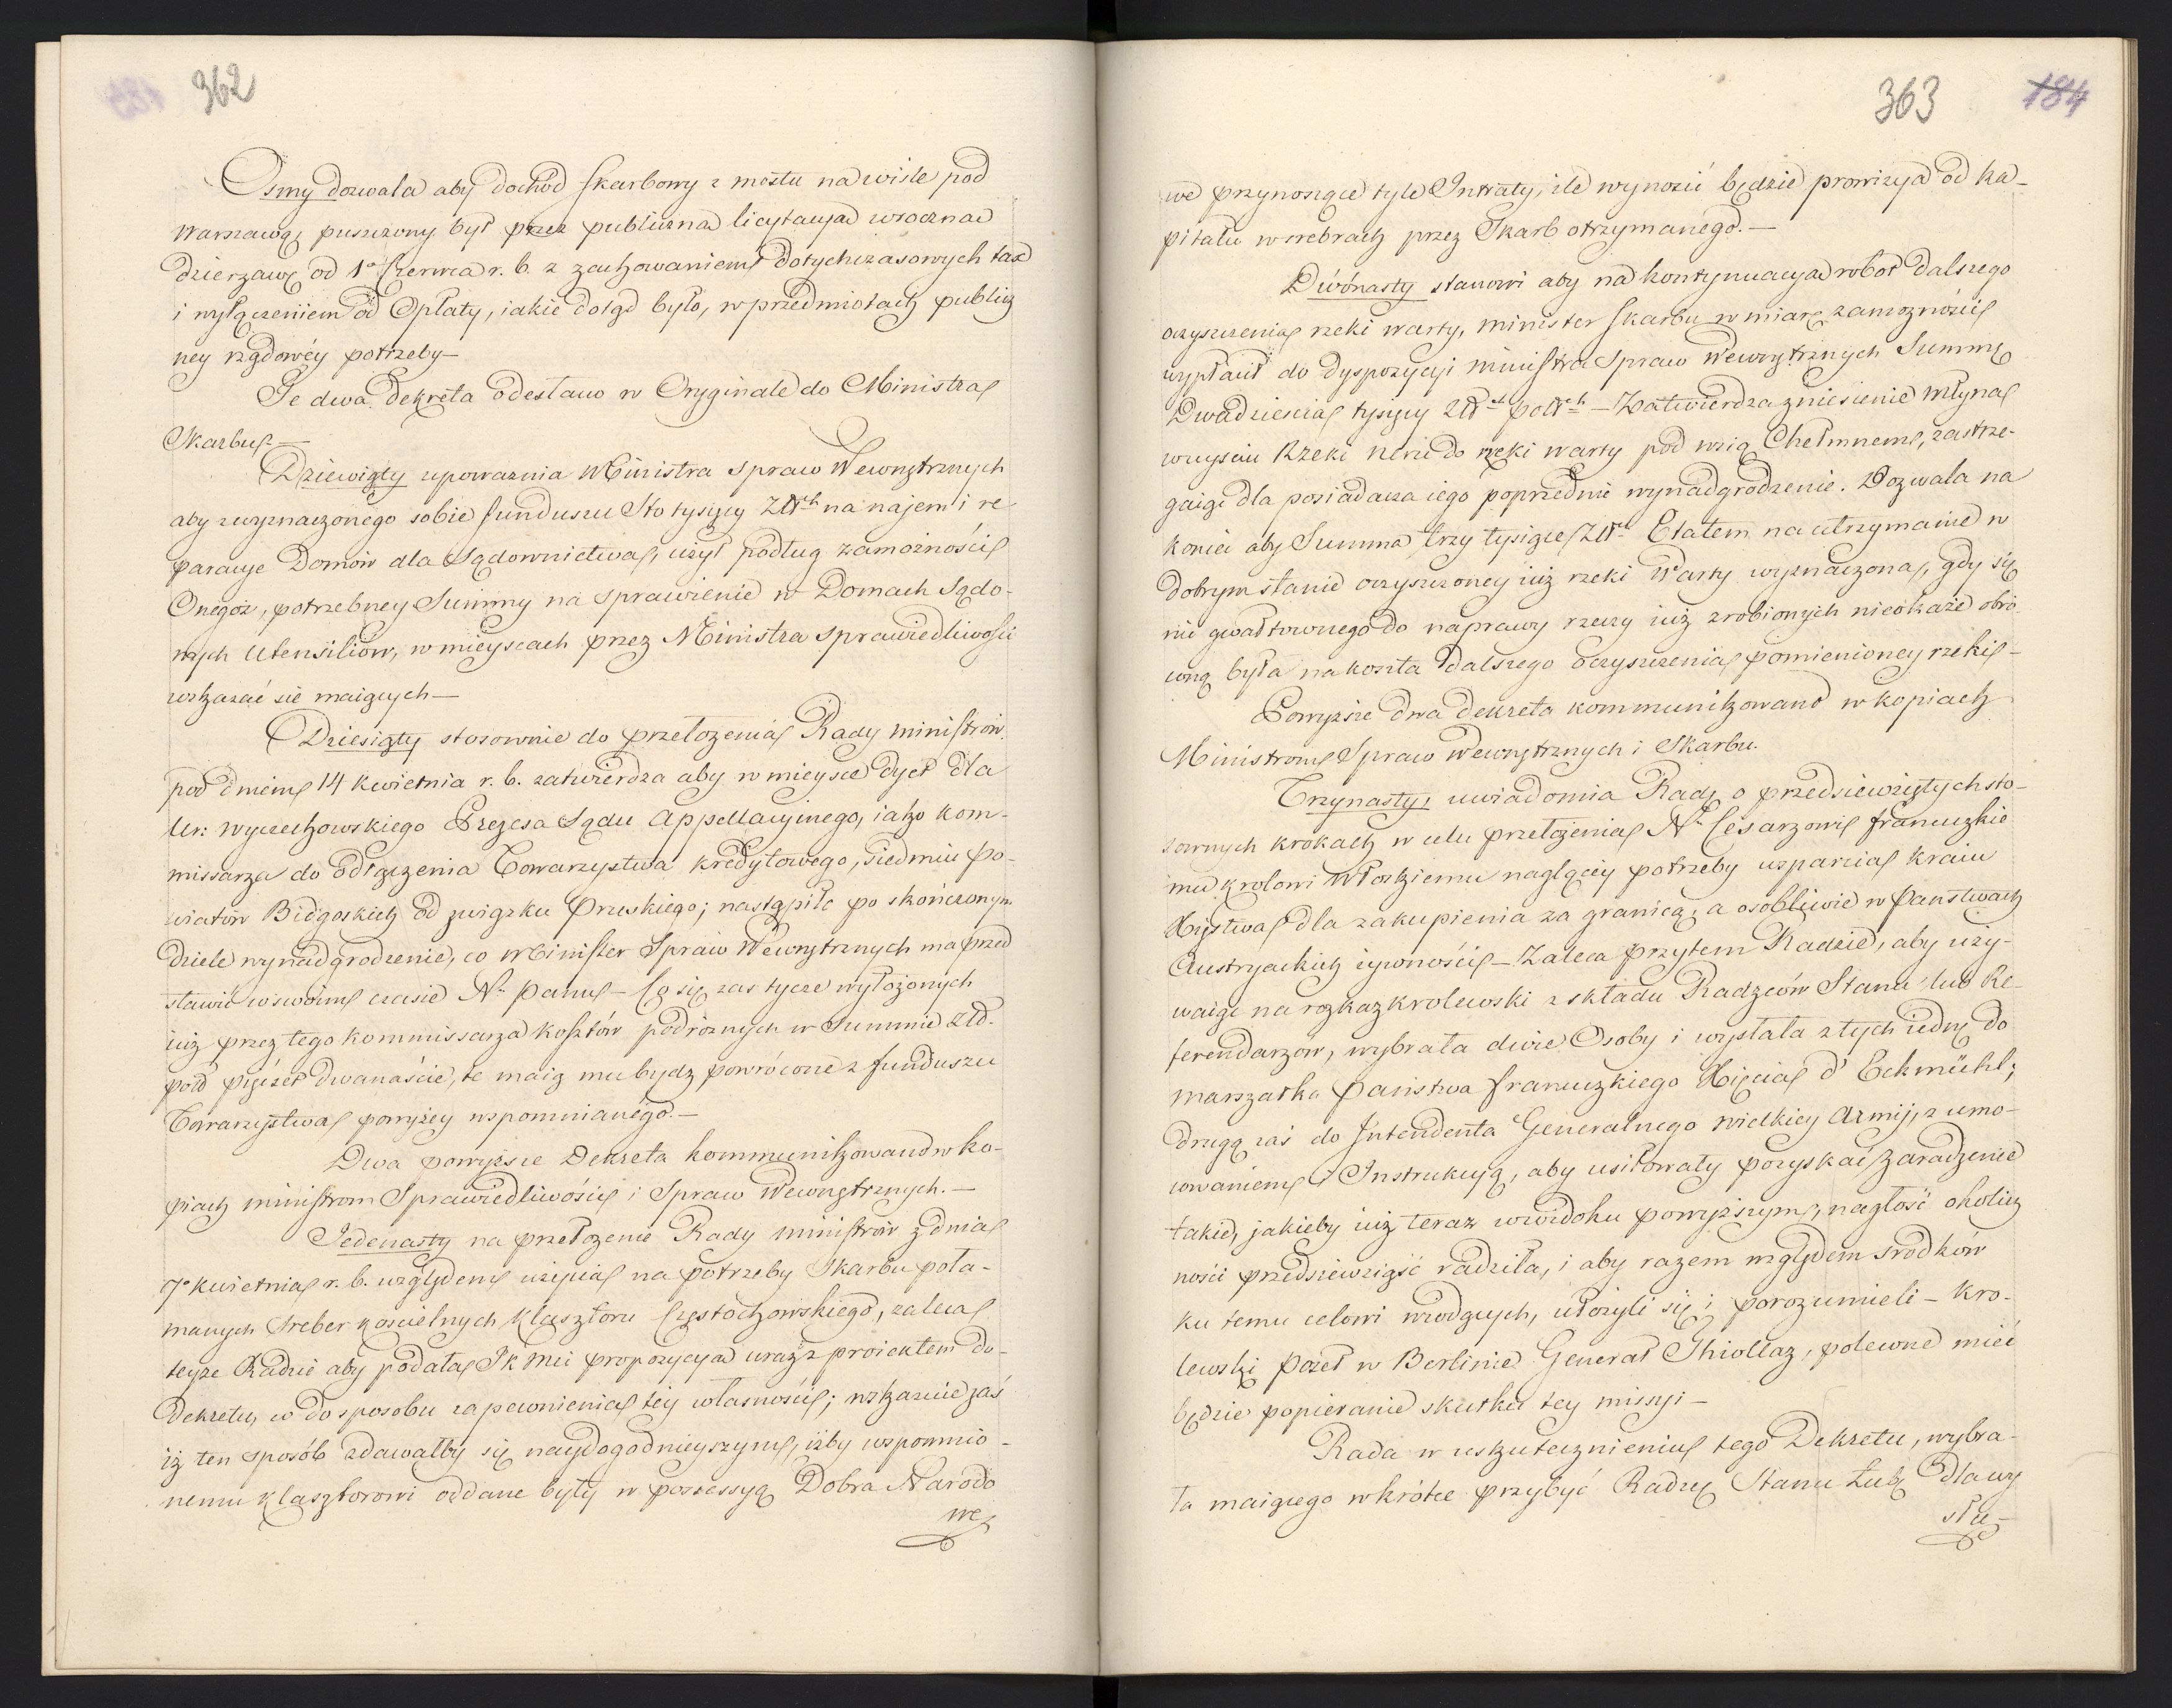 362
Osmy dozwala aby dochod skarbowy z mostu na wisle pod
Warszawą, puszczony był przez publiczna licytacya wroczna
dzierzawę od 1o Czerwca r. b. z zachowaniem dotychczasowych tax
i wyłączeniem od Opłaty, iakie dotąd było, w przedmiotach publicz
ney rządowéy potrzeby—
Te dwa Dekreta odesłano w Oryginale do Ministra
Skarbu.—
Dziewiąty upoważnia Ministra Spraw Wewnętrznych
aby z wyznaczonego sobie funduszu Sto tysięcy Złłch na najem i re
paracye Domów dla Sądownictwa, użył podług zamożności
Onegoż, potrzebney Summy na sprawienie w Domach Sądo-
wych Utensiliów, w mieyscach przez Ministra Sprawiedliwości
wskazać się maiących—
Dziesiąty stosownie do przełozenia Rady ministrów
pod dniem 14 Kwietnia r. b. zatwierdza aby w mieysce dyet dla
Ur: Wyczechowskiego Prezesa Sądu Appellacyinego, iako kom-
missarza do odłączenia Towarzystwa kredytowego, siedmiu po-
wiatów Bidgoskich od związku Pruskiego; nastąpiło po skończonym
dziele wynadgrodzenie, co Minister Spraw Wewnętrznych ma przed
stawić w swoim czasie Nu Panu— Co się zas tycze wyłożonych
iuż przez tego kommissarza kosztów podróżnych w Summie złł.
poll pięćset dwanaście, te maią mu bydz powrócone z funduszu
Towarzystwa powyżey wspomnianégo.—
Dwa powyższe Dekreta kommunikowano w ko-
piach ministrom Sprawiedliwości i Spraw Wewnętrznych.—
Jedenasty na przełozenie Rady ministrów z dnia
7o Kwietnia r. b. względem użycia na potrzeby Skarbu poła-
manych Sreber kościelnych Klasztoru Częstochowskiego, zaleca
teyże Radzie aby podała JKMci propozycya wraz z proiektem de-
dekretu, co do sposobu zapewnienia tey własności; wskazuie zaś
iż ten sposób zdawałby się naydogodnieyszym, iżby wspomnio-
nemu Klasztorowi oddane były w possessyą Dobra Narodo
we
363 184
we przynoszące tyle Intraty, ile wynosić będzie prowizya od ka-
pitału w srebrach przez Skarb otrzymanégo.—
Dwónasty stanowi aby na kontynuacya robot dalszego
oczyszczenia rzeki warty, minister Skarbu w miarę zamożności
wypłacił do dyspozycyi ministra Spraw Wewnętrznych Summę
Dwadzieścia tysięcy Złłch polłch— Zatwierdza zniesienie młyna
w uyściu Rzeki Neru do rzeki warty pod wsią Chełmnem, zastrze-
gaiąc dla posiadacza iego poprzednie wynadgrodzenie. Dozwala na
koniec aby Summa trzy tysiące Złłch Etatem na utrzymanie w
dobrym stanie oczyszczoney iuż rzeki Warty wyznaczona, gdy się
nic gwałtownego do naprawy rzeczy iuż zrobionych nieokaże obró-
coną była na koszta dalszego oczyszczenia pomienioney rzeki—
Powyższe dwa dekreta kommunikowano w kopiach
Ministrom Spraw Wewnętrznych i Skarbu.
Trzynasty, uwiadomia Radę o przedsiewziętych sto-
sownych krokach w celu przełożenia Nu Cesarzowi francuzkie
mu krolowi Włoskiemu naglącéy potrzeby wsparcia kraiu
Xięstwa dla zakupienia za granicą, a osobliwie w Państwach
Austryackich żywności— Zaleca przytem Radzie, aby uży-
waiąc na rozkaz krolewski z składu Radzców Stanu lub Re-
ferendarzów, wybrała dwie Osoby i wysłała z tych iednę do
marszałka Państwa francuzkiego Xięcia d'Eckmühl;
drugą zaś do Intendenta Generalnego wielkiey Armij, z umo-
cowaniem i Instrukcyą, aby usiłowały pozyskać zaradzenie
takie, jakieby iuż teraz w widoku powyższym, nagłość okolicz
ności przedsiewziąść radziła, i aby razem względem srodków
ku temu celowi wiodących, ułożyli się i porozumieli— Kro-
lewski Poseł w Berlinie Generał Thiollaz, polecone mieć
będzie popieranie skutku tey missyi—
Rada w uskutecznieniu tego Dekretu, wybra-
ła maiącego wkrótce przybyć Radzcę Stanu Łubę dla wy
słu-